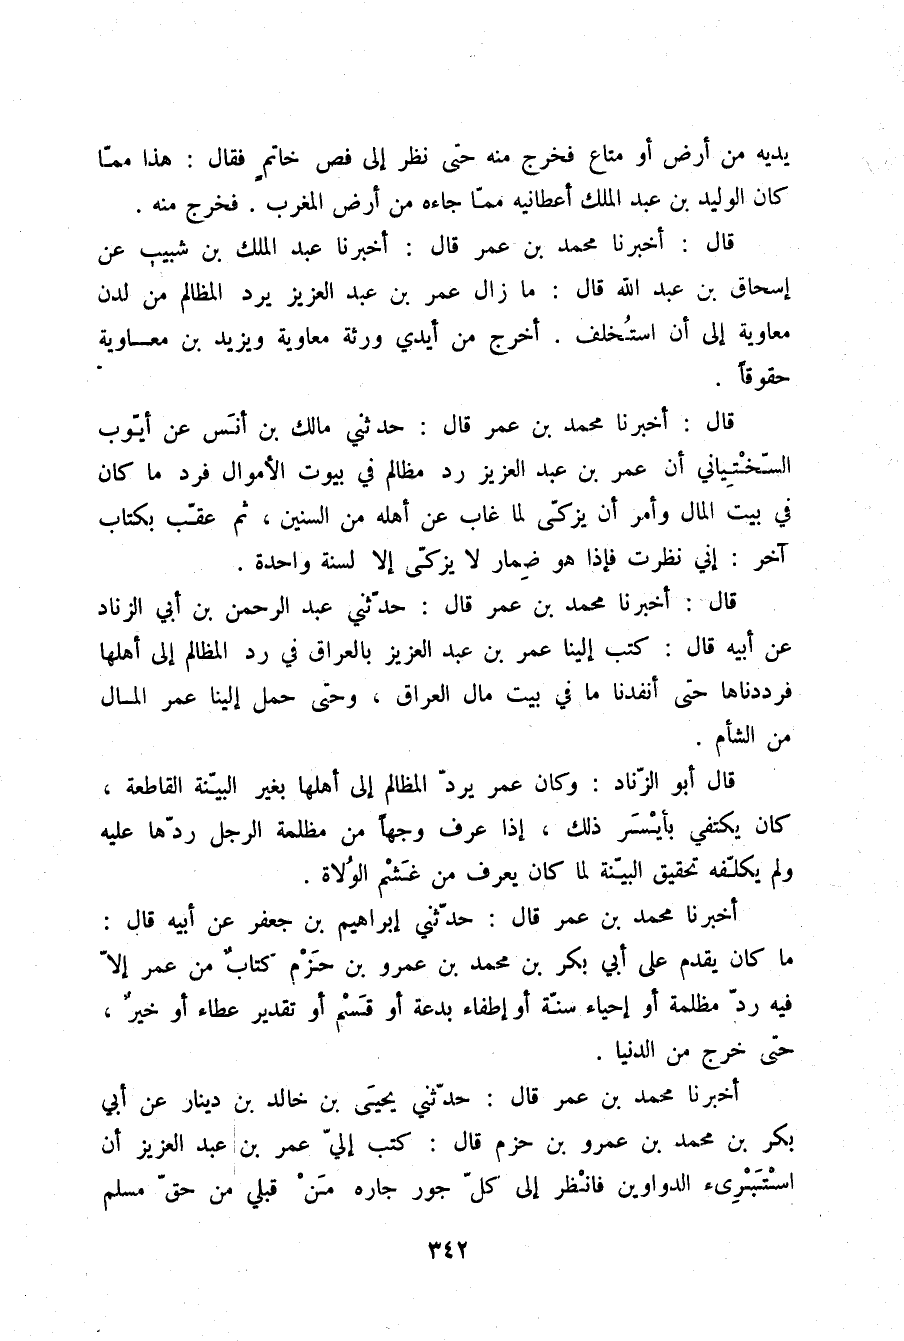 يديه من أرض أو متاع فخرج منه حتّى نظر إلى فص خاتمٍ فقال : هذا ممـّا
كان الوليد بن عبد الملك أعطانيه ممـّا جاءه من أرض المغرب . فخرج منه .
قال : أخبرنا محمد بن عمر قال : أخبرنا عبد الملك بن شبيب عن
إسحاق بن عبد الله قال : ما زال عمر بن عبد العزيز يرد المظالم من لدن
معاوية إلى أن استُخلف . أخرج من أيدي ورثة معاوية ويزيد بن معـــاوية
حقوقاً .
قال : أخبرنا محمد بن عمر قال : حدثني مالك بن أنَس عن أيـّوب
السّخْتِياني أن عمر بن عبد العزيز رد مظالم في بيوت الأموال فرد ما كان
في بيت المال وأمر أن يزكـّى لما غاب عن أهله من السنين ، ثم عقـّب بكتاب
آخر : إني نظرت فإذا هو ضِمار لا يزكـّى إلا لسنة واحدة .
قال : أخبرنا محمد بن عمر قال : حدّثني عبد الرحمن بن أبي الزناد
عن أبيه قال : كتب إلينا عمر بن عبد العزيز بالعراق في رد المظالم إلى أهلها
فرددناها حتّى أنفدنا ما في بيت مال العراق ، وحتّى حمل إلينا عمر المـــال
من الشأم .
قال أبو الزّناد : وكان عمر يردّ المظالم إلى أهلها بغير البيـّنة القاطعة ،
كان يكتفي بأيْسَر ذلك ، إذا عرف وجهاً من مظلمة الرجل ردّها عليه
ولم يكلـّفه تحقيق البيـّنة لما كان يعرف من غَشْم الوُلاة .
أخبرنا محمد بن عمر قال : حدّثني إبراهيم بن جعفر عن أبيه قال :
ما كان يقدم على أبي بكر بن محمد بن عمرو بن حَزْم كتابٌ من عمر إلاّ
فيه ردّ مظلمة أو إحياء سنّة أو إطفاء بدعة أو قَسْم أو تقدير عطاء أو خيرٌ ،
حتّى خرج من الدنيا .
أخبرنا محمد بن عمر قال : حدّثني يحيَى بن خالد بن دينار عن أبي
بكر بن محمد بن عمرو بن حزم قال : كتب إليّ عمر بن عبد العزيز أن
استْبَرِىء الدواوين فانْظر إلى كلّ جور جاره مَنْ قبلي من حقّ مسلم
٣٤٢